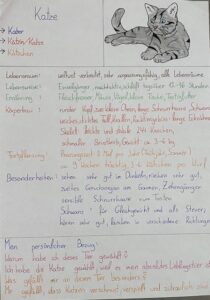 Katze
→ Kater
→ Katzin/Katze
→ Kätzchen
Lebensraum: weltweit verbreitet, sehr anpassungsfähig, alle Lebensräume
Lebensweise: Einzelgänger, nachtaktiv, schläft tagsüber 12-16 Stunden
Ernährung: Fleischfresser, Mäuse, Vögel,
Körperbau: runder Kopf, Ohren, lange Schnurrhaare, Schwanz
weiches, dichtes Fell, Krallen,
Skelett: leicht und stabil 244 Knochen,
schmaler Brustkorb, Gewicht: ca. 5 kg
Fortpflanzung: Paarungszeit 2 Mal pro Jahr (Frühjahr, Sommer)
ca. 9 Wochen trächtig, 3-6 Kätzchen pro Wurf
Besonderheiten: sehen sehr gut im Dunkeln, riechen sehr gut,
zweites Geruchsorgan am Gaumen, Zehengänger
sensible Schnurrhaare zum Tasten
Schwanz: für Gleichgewicht und als Steuer,
hören sehr gut, landen in verschiedene Richtungen
Mein persönlicher Bezug:
Warum habe ich dieses Tier gewählt?
Ich habe die Katze gewählt, weil es mein absolutes Lieblingstier ist.
Was gefällt mir an diesem Tier besonders?
Mir gefällt, dass Katzen verschmust, verspielt und zutraulich sind.